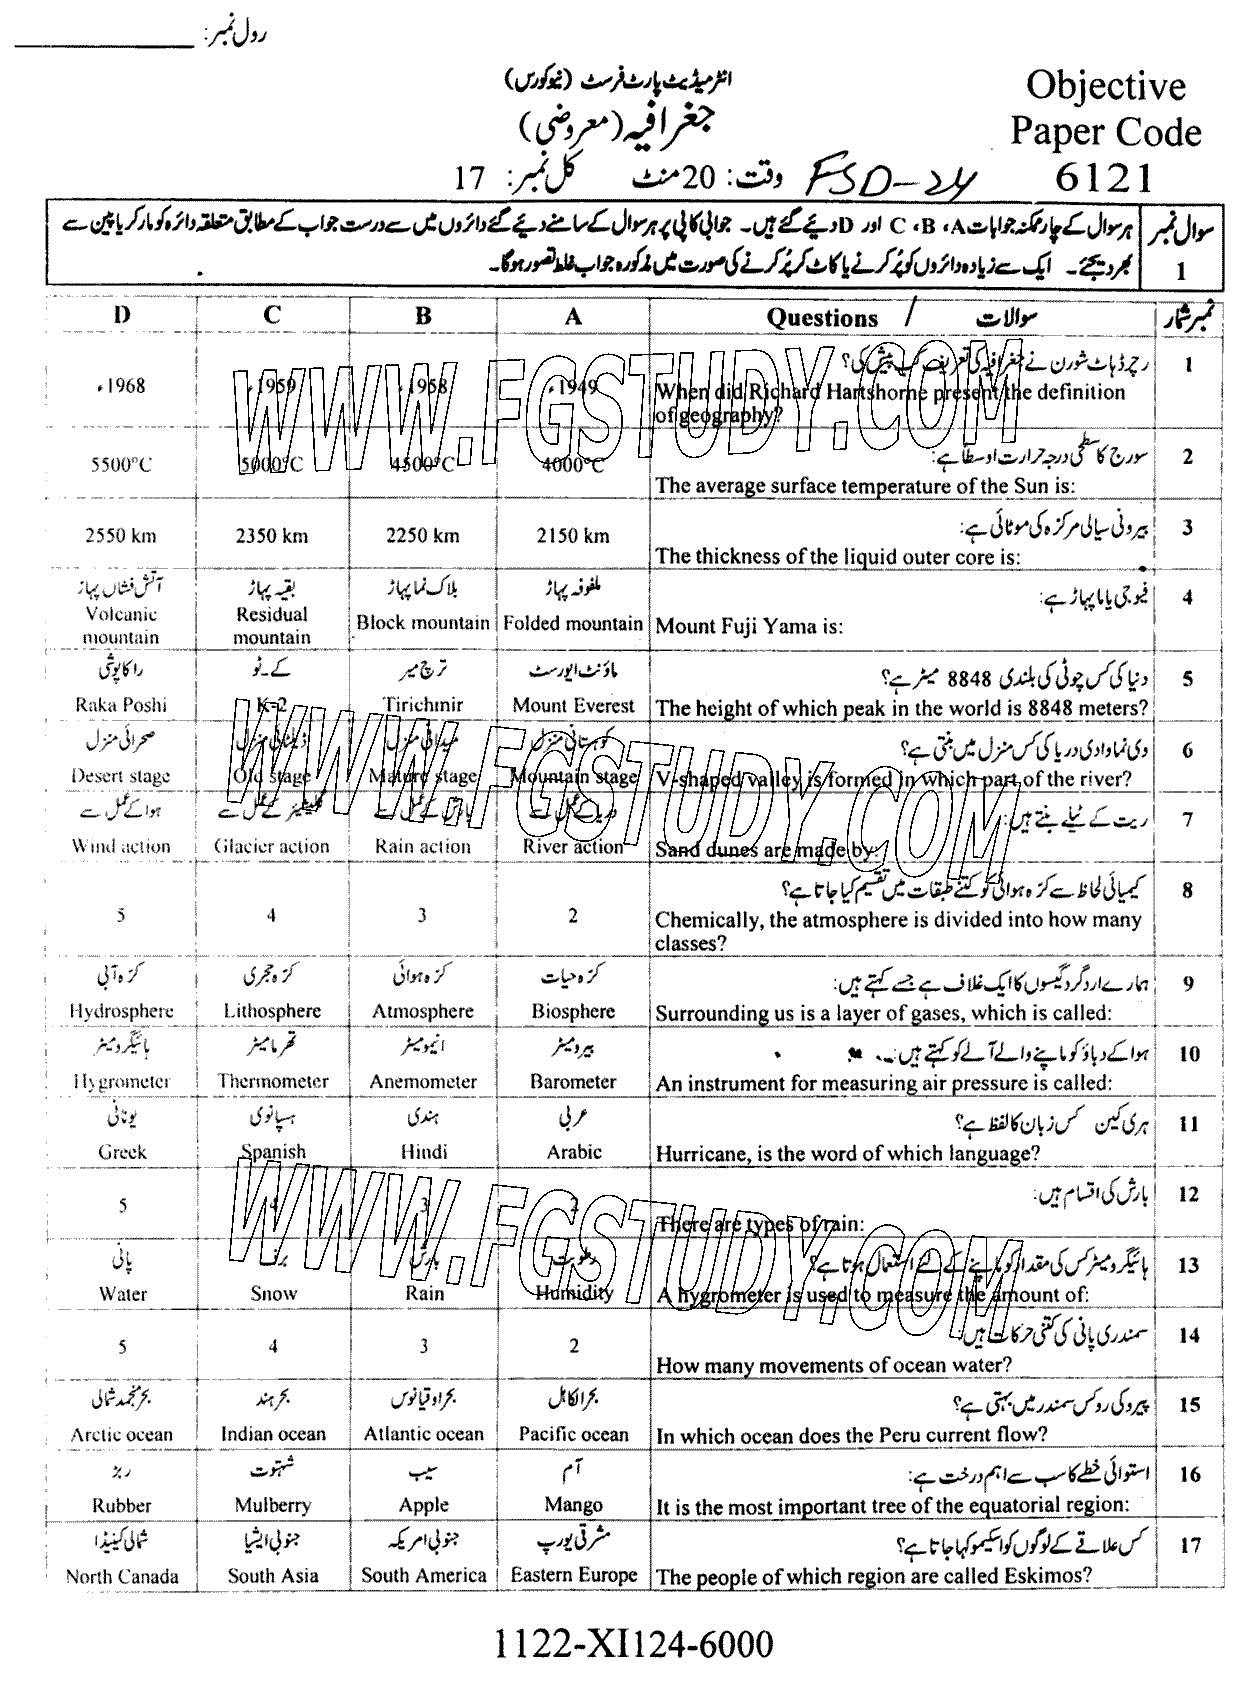 رول نمبر:
انٹرمیڈیٹ پارٹ فرسٹ (نیو کورس)
Objective
جغرافیہ (معروضی)
Paper Code
وقت: 20 منٹ کل نمبر: 17
FSD-24
6121
سوال نمبر 1
ہر سوال کے چار ممکنہ جوابات A، B، C اور D دیئے گئے ہیں۔ جوابی کاپی پر ہر سوال کے سامنے دیئے گئے دائروں میں سے درست جواب کے مطابق متعلقہ دائرہ کو مارکر یا پین سے
بھر دیجئے۔ ایک سے زیادہ دائروں کو پُر کرنے یا کاٹ کر پُر کرنے کی صورت میں مذکورہ جواب غلط تصور ہوگا۔
D C B A Questions / سوالات نمبر شمار
1 رچرڈ ہاٹ شورن نے جغرافیہ کی تعریف کب پیش کی؟
When did Richard Hartshorne present the definition
of geography?
1968ء 1959ء 1958ء 1949ء
2 سورج کا سطحی درجہ حرارت اوسطاً ہے:
The average surface temperature of the Sun is:
5500°C 5000°C 4500°C 4000°C
3 بیرونی سیالی مرکزہ کی موٹائی ہے:
The thickness of the liquid outer core is:
2550 km 2350 km 2250 km 2150 km
4 فیوجی یاما پہاڑ ہے:
Mount Fuji Yama is:
آتش فشاں پہاڑ بقیہ پہاڑ بلاک نما پہاڑ ملفوفہ پہاڑ
Volcanic mountain Residual mountain Block mountain Folded mountain
5 دنیا کی کس چوٹی کی بلندی 8848 میٹر ہے؟
The height of which peak in the world is 8848 meters?
راکاپوشی کے۔ٹو ترچ میر ماؤنٹ ایورسٹ
Raka Poshi K-2 Tirichmir Mount Everest
6 وی نما وادی دریا کی کس منزل میں بنتی ہے؟
V-shaped valley is formed in which part of the river?
صحرائی منزل ڈیلٹائی منزل میدانی منزل کوہستانی منزل
Desert stage Old stage Mature stage Mountain stage
7 ریت کے ٹیلے بنتے ہیں:
Sand dunes are made by:
ہوا کے عمل سے گلیشیئر کے عمل سے بارش کے عمل سے دریا کے عمل سے
Wind action Glacier action Rain action River action
8 کیمیائی لحاظ سے کرہ ہوائی کو کتنے طبقات میں تقسیم کیا جاتا ہے؟
Chemically, the atmosphere is divided into how many
classes?
5 4 3 2
9 ہمارے ارد گرد گیسوں کا ایک غلاف ہے جسے کہتے ہیں:
Surrounding us is a layer of gases, which is called:
کرہ آبی کرہ حجری کرہ ہوائی کرہ حیات
Hydrosphere Lithosphere Atmosphere Biosphere
10 ہوا کے دباؤ کو ماپنے والے آلے کو کہتے ہیں:
An instrument for measuring air pressure is called:
ہائیگرومیٹر تھرمامیٹر انیمومیٹر بیرومیٹر
Hygrometer Thermometer Anemometer Barometer
11 ہری کین کس زبان کا لفظ ہے؟
Hurricane, is the word of which language?
یونانی ہسپانوی ہندی عربی
Greek Spanish Hindi Arabic
12 بارش کی اقسام ہیں:
There are types of rain:
5 4 3 2
13 ہائیگرومیٹر کس کی مقدار کو ماپنے کے لئے استعمال ہوتا ہے؟
A hygrometer is used to measure the amount of:
پانی برف بارش رطوبت
Water Snow Rain Humidity
14 سمندری پانی کی کتنی حرکات ہیں:
How many movements of ocean water?
5 4 3 2
15 پیرو کی رو کس سمندر میں بہتی ہے؟
In which ocean does the Peru current flow?
بحر منجمد شمالی بحر ہند بحر اوقیانوس بحرالکاہل
Arctic ocean Indian ocean Atlantic ocean Pacific ocean
16 استوائی خطے کا سب سے اہم درخت ہے:
It is the most important tree of the equatorial region:
ربڑ شہتوت سیب آم
Rubber Mulberry Apple Mango
17 کس علاقے کے لوگوں کو اسکیمو کہا جاتا ہے؟
The people of which region are called Eskimos?
شمالی کینیڈا جنوبی ایشیا جنوبی امریکہ مشرقی یورپ
North Canada South Asia South America Eastern Europe
1122-XI124-6000
WWW.FGSTUDY.COM
WWW.FGSTUDY.COM
WWW.FGSTUDY.COM